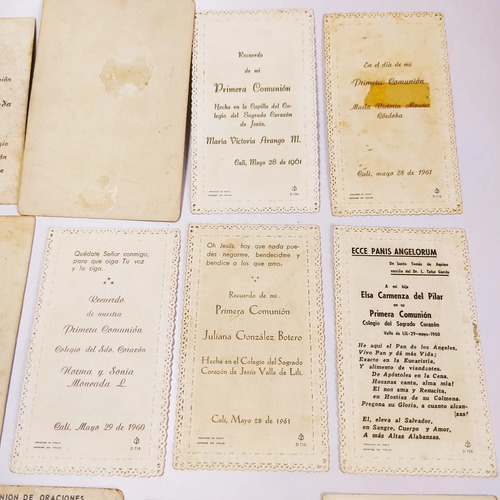 nión
Recuerdo
de mi
Primera Comunión
Hecha en la Capilla del Co-
legio del Sagrado Corazón
de Jesús.
María Victoria Arango M.
Cali, Mayo 28 de 1961
PRINTED IN ITALY
En el día de mi
Primera Comunión
María Victoria
Córdoba
Cali, mayo 28 de 1961
PRINTED IN ITALY
Quédate Señor conmigo,
para que oiga Tu voz
y la siga.
Recuerdo
de nuestra
Primera Comunión
Colegio del Sdo. Corazón
Norma y Sonia
Moncada L.
Cali, Mayo 29 de 1960
PRINTED IN ITALY
Oh Jesús, hoy que nada pue-
des negarme, bendecidme y
bendice a los que amo.
Recuerdo de mi
Primera Comunión
Juliana González Botero
Hecha en el Colegio del Sagrado
Corazón de Jesús Valle de Lili.
Cali, Mayo 28 de 1961
PRINTED IN ITALY
ECCE PANIS ANGELORUM
De Santo Tomás de Aquino
versión del Dr. L. Tafur Garcés
A mi hija
Elsa Carmenza del Pilar
en su
Primera Comunión
Colegio del Sagrado Corazón
Valle de Lili-29-mayo-1960
He aquí el Pan de los Angeles,
Vivo Pan y dá más Vida;
Exacto en la Eucaristía,
y alimento de viandantes.
De Apóstoles en la Cena,
Hosanas canta, alma mía!
El nos ama y Resucita,
en Hostias de su Colmena.
Pregona su Gloria, a cuanto alcan-
zas!
El, eleva al Salvador,
en Sangre, Cuerpo y Amor,
A más Altas Alabanzas.
PRINTED IN ITALY
NION DE ORACIONES